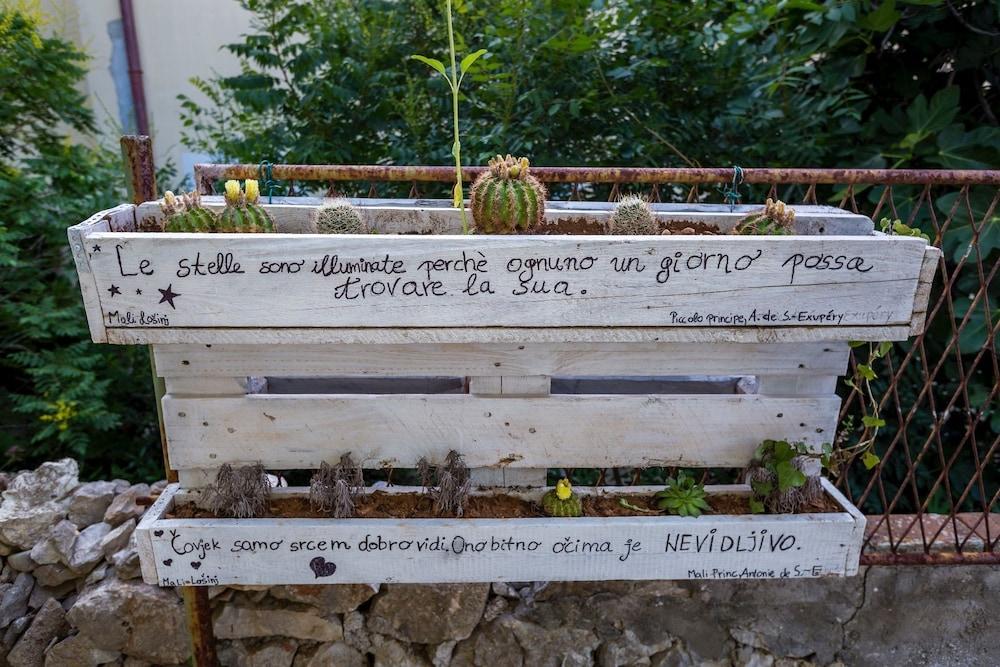 Le stelle sono illuminate perchè ognuno un giorno possa
trovare la sua.
Mali Lošinj
Piccolo principe, A. de S.-Exupéry
Čovjek samo srcem dobro vidi. Ono bitno očima je NEVIDLJIVO.
Mali-Lošinj
Mali Princ, Antonie de S.-E